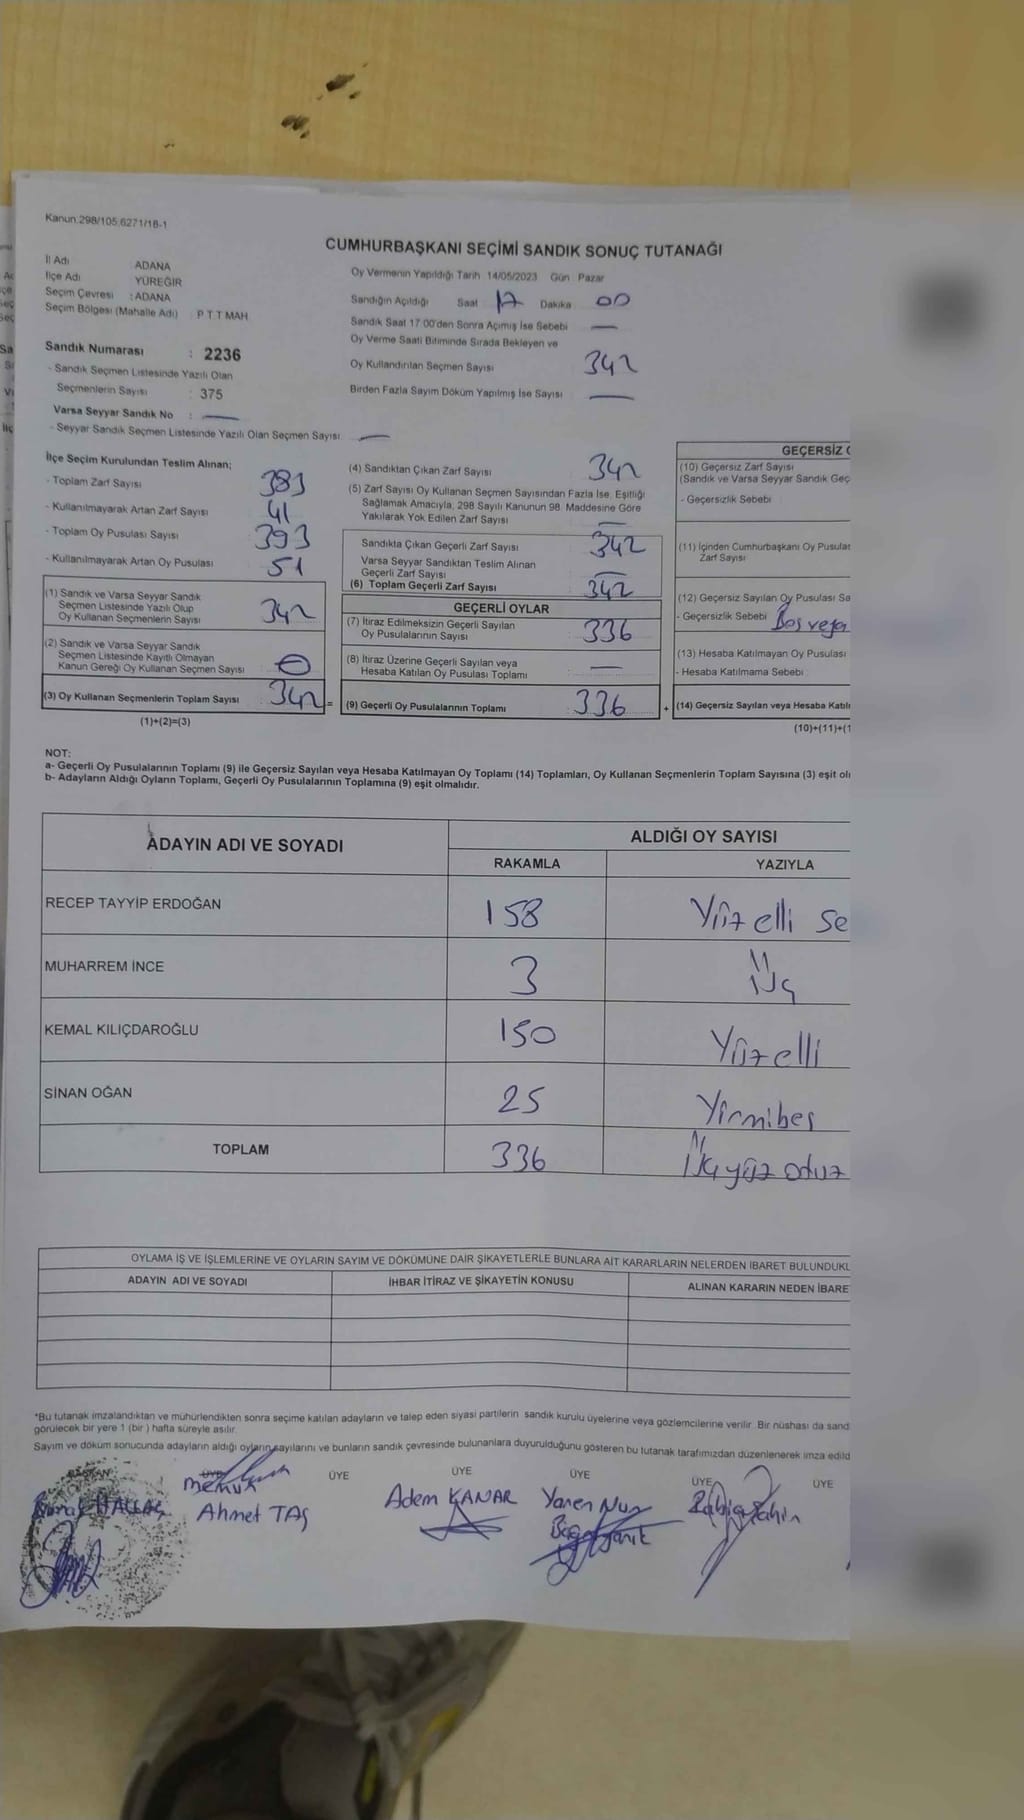 Kanun:298/105,6271/18-1
CUMHURBAŞKANI SEÇİMİ SANDIK SONUÇ TUTANAĞI
İl Adı : ADANA
İlçe Adı : YÜREĞİR
Seçim Çevresi : ADANA
Seçim Bölgesi (Mahalle Adı) : P T T MAH
Sandık Numarası : 2236
- Sandık Seçmen Listesinde Yazılı Olan
Seçmenlerin Sayısı : 375
Varsa Seyyar Sandık No : —
- Seyyar Sandık Seçmen Listesinde Yazılı Olan Seçmen Sayısı: —
Oy Vermenin Yapıldığı Tarih 14/05/2023 Gün Pazar
Sandığın Açıldığı Saat 17 Dakika 00
Sandık Saat 17:00'den Sonra Açılmış İse Sebebi —
Oy Verme Saati Bitiminde Sırada Bekleyen ve
Oy Kullandırılan Seçmen Sayısı 342
Birden Fazla Sayım Döküm Yapılmış İse Sayısı —
İlçe Seçim Kurulundan Teslim Alınan;
- Toplam Zarf Sayısı 383
- Kullanılmayarak Artan Zarf Sayısı 41
- Toplam Oy Pusulası Sayısı 393
- Kullanılmayarak Artan Oy Pusulası 51
(1) Sandık ve Varsa Seyyar Sandık
Seçmen Listesinde Yazılı Olup
Oy Kullanan Seçmenlerin Sayısı 342
(2) Sandık ve Varsa Seyyar Sandık
Seçmen Listesinde Kayıtlı Olmayan
Kanun Gereği Oy Kullanan Seçmen Sayısı 0
(3) Oy Kullanan Seçmenlerin Toplam Sayısı 342 =
(1)+(2)=(3)
(4) Sandıktan Çıkan Zarf Sayısı 342
(5) Zarf Sayısı Oy Kullanan Seçmen Sayısından Fazla İse, Eşitliği
Sağlamak Amacıyla, 298 Sayılı Kanunun 98. Maddesine Göre
Yakılarak Yok Edilen Zarf Sayısı —
Sandıkta Çıkan Geçerli Zarf Sayısı 342
Varsa Seyyar Sandıktan Teslim Alınan
Geçerli Zarf Sayısı —
(6) Toplam Geçerli Zarf Sayısı 342
GEÇERLİ OYLAR
(7) İtiraz Edilmeksizin Geçerli Sayılan
Oy Pusulalarının Sayısı 336
(8) İtiraz Üzerine Geçerli Sayılan veya
Hesaba Katılan Oy Pusulası Toplamı —
(9) Geçerli Oy Pusulalarının Toplamı 336 +
GEÇERSİZ
(10) Geçersiz Zarf Sayısı
(Sandık ve Varsa Seyyar Sandık Geç
- Geçersizlik Sebebi
(11) İçinden Cumhurbaşkanı Oy Pusulas
Zarf Sayısı
(12) Geçersiz Sayılan Oy Pusulası Sa
- Geçersizlik Sebebi Boş veya
(13) Hesaba Katılmayan Oy Pusulası
- Hesaba Katılmama Sebebi
(14) Geçersiz Sayılan veya Hesaba Katılm
(10)+(11)+(1
NOT:
a- Geçerli Oy Pusulalarının Toplamı (9) ile Geçersiz Sayılan veya Hesaba Katılmayan Oy Toplamı (14) Toplamları, Oy Kullanan Seçmenlerin Toplam Sayısına (3) eşit olm
b- Adayların Aldığı Oyların Toplamı, Geçerli Oy Pusulalarının Toplamına (9) eşit olmalıdır.
ADAYIN ADI VE SOYADI
ALDIĞI OY SAYISI
RAKAMLA YAZIYLA
RECEP TAYYİP ERDOĞAN 158 Yüzelli se
MUHARREM İNCE 3 Üç
KEMAL KILIÇDAROĞLU 150 Yüzelli
SİNAN OĞAN 25 Yirmibeş
TOPLAM 336 Üçyüz otuz
OYLAMA İŞ VE İŞLEMLERİNE VE OYLARIN SAYIM VE DÖKÜMÜNE DAİR ŞİKAYETLERLE BUNLARA AİT KARARLARIN NELERDEN İBARET BULUNDUKL
ADAYIN ADI VE SOYADI İHBAR İTİRAZ VE ŞİKAYETİN KONUSU ALINAN KARARIN NEDEN İBARE
*Bu tutanak imzalandıktan ve mühürlendikten sonra seçime katılan adayların ve talep eden siyasi partilerin sandık kurulu üyelerine veya gözlemcilerine verilir. Bir nüshası da sand
görülecek bir yere 1 (bir) hafta süreyle asılır.
Sayım ve döküm sonucunda adayların aldığı oyların sayılarını ve bunların sandık çevresinde bulunanlara duyurulduğunu gösteren bu tutanak tarafımızdan düzenlenerek imza edild
BAŞKAN ÜYE ÜYE ÜYE ÜYE ÜYE ÜYE
memur
Ahmet TAŞ
Adem KANAR
Yaren Nur